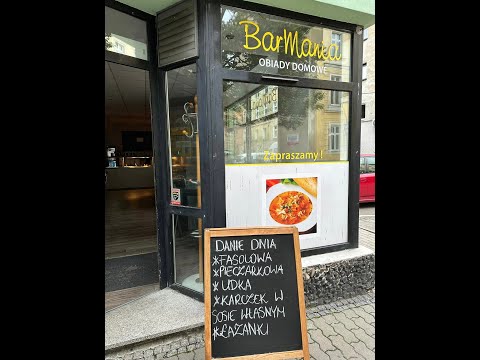 BarManka
OBIADY DOMOWE
Zapraszamy!
DANIE DNIA
*FASOLOWA
*PIECZARKOWA
*UDKA
*KARCZEK W
SOSIE WŁASNYM
*ŁAZANKI